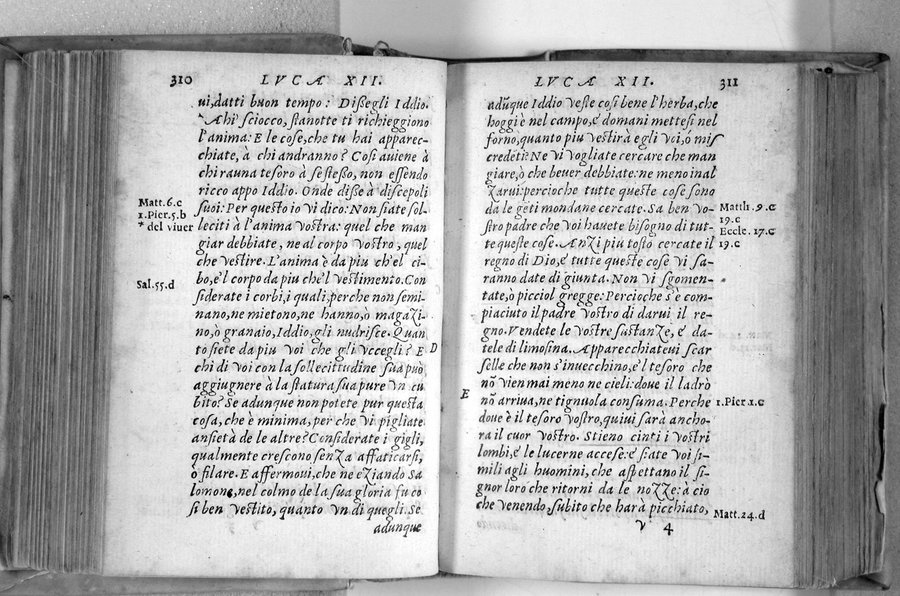 310
LVCA XII.
ui, datti buon tempo: Dißegli Iddio.
Ahi sciocco, stanotte ti richieggiono
l'anima: E le cose, che tu hai apparec-
chiate, à chi andranno? Cosi auiene à
chi rauna tesoro à se steßo, non essendo
ricco appo Iddio. Onde diße à discepoli
suoi: Per questo io vi dico: Non siate sol-
leciti à l'anima vostra: quel che man
giar debbiate, ne al corpo vostro, quel
che vestire. L'anima è da piu ch'el ci-
bo, e'l corpo da piu che'l vestimento. Con
siderate i corbi, i quali, perche non semi-
nano, ne mietono, ne hanno, ò magaZi-
no, ò granaio, Iddio, gli nudrisce. Quan
to siete da piu voi che gli vccegli? E
chi di voi con la sollecitudine sua può
aggiugnere à la statura sua pure vn cu
bito? Se adunque non potete pur questa
cosa, che è minima, per che vi pigliate
ansietà de le altre? Considerate i gigli,
qualmente crescono senZa affaticarsi,
ò filare. E affermoui, che ne eZiando Sa
lomone, nel colmo de la sua gloria fu co
si ben vestito, quanto vn di quegli. Se
adunque
Matt. 6. c
1. Pier. 5. b
* del viuer
Sal. 55. d
D
LVCA XII.
311
adūque Iddio veste cosi bene l'herba, che
hoggi è nel campo, e' domani mettesi nel
forno, quanto piu vestirà egli voi, ò mis
credeti? Ne vi vogliate cercare che man
giare, ò che beuer debbiate: ne meno inal
Zarui: percioche tutte queste cose sono
da le gēti mondane cercate. Sa ben vo-
stro padre che voi hauete bisogno di tut-
te queste cose. AnZi più tosto cercate il
regno di Dio, e' tutte queste cose vi sa-
ranno date di giunta. Non vi sgomen-
tate, ò picciol gregge: Percioche s'è com-
piaciuto il padre vostro di darui il re-
gno. Vendete le vostre sustanZe, e' da-
tele di limosina. Apparecchiateui scar
selle che non s'inuecchino, e'l tesoro che
nō vien mai meno ne cieli: doue il ladrō
nō arriua, ne tignuola consuma. Perche
doue è il tesoro vostro, quiui sarà ancho-
ra il cuor vostro. Stieno cinti i vostri
lombi, e' le lucerne accese: e' siate voi si-
mili agli huomini, che aspettano il si-
gnor loro che ritorni da le noZZe: a cio
che venendo subito che harà picchiato,
V 4
Matth. 9. c
19. c
Eccle. 17. c
19. c
E
1. Pier 1. c
Matt. 24. d